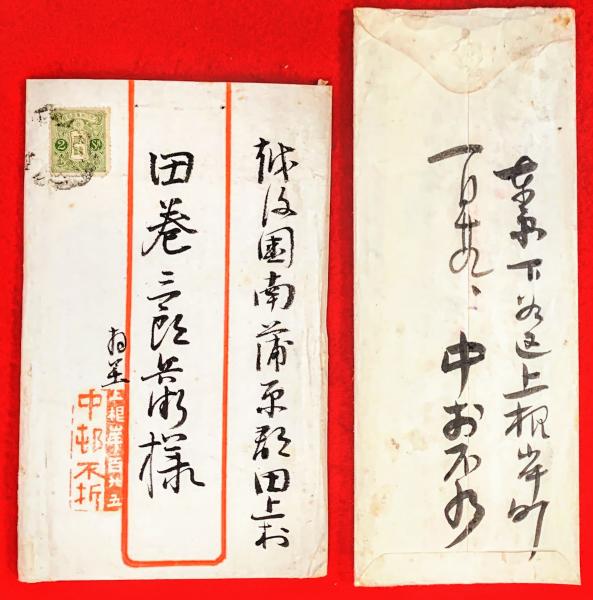 越後國南蒲原郡田上村
田巻三郎兵衛様
上根岸百廿五
中邨不折
東京下谷区上根岸町
中村不折